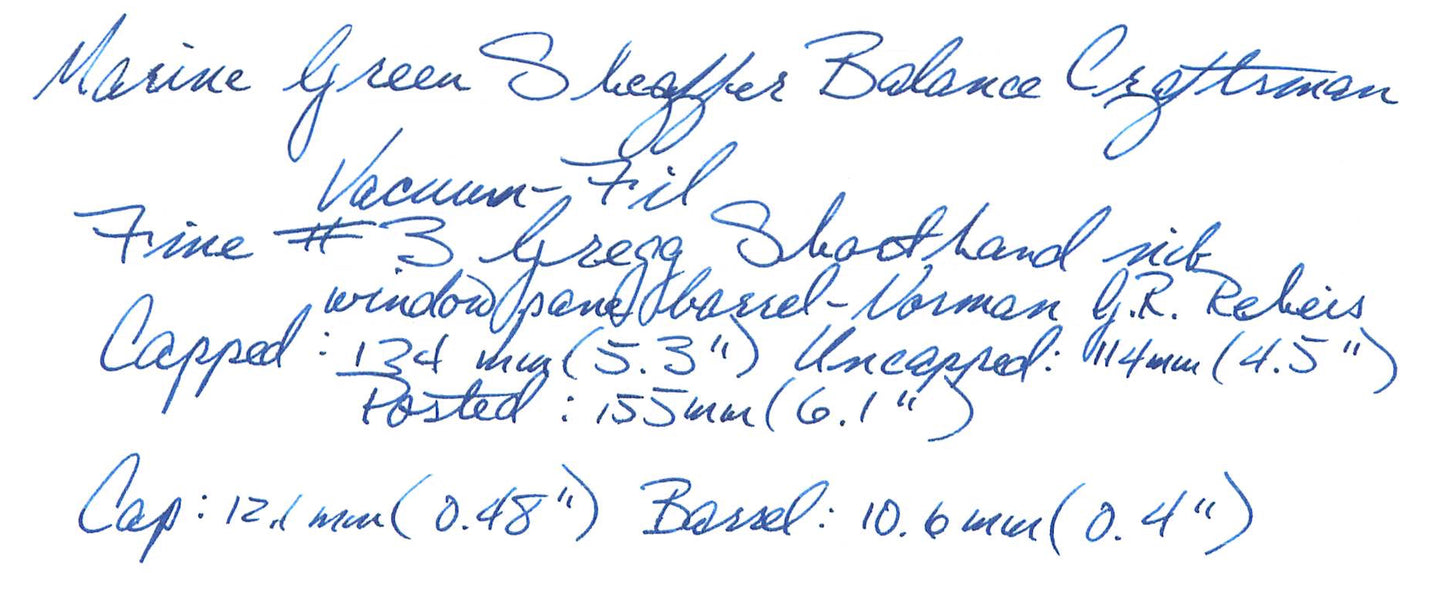 Marine Green Sheaffer Balance Craftsman
Vacuum-Fil
Fine #3 Gregg Shorthand nib
windowpane barrel - Norman G.R.
Capped: 134 mm (5.3") Uncapped: 114mm (4.5")
Posted: 155mm (6.1")
Cap: 12.1 mm (0.48") Barrel: 10.6 mm (0.4")